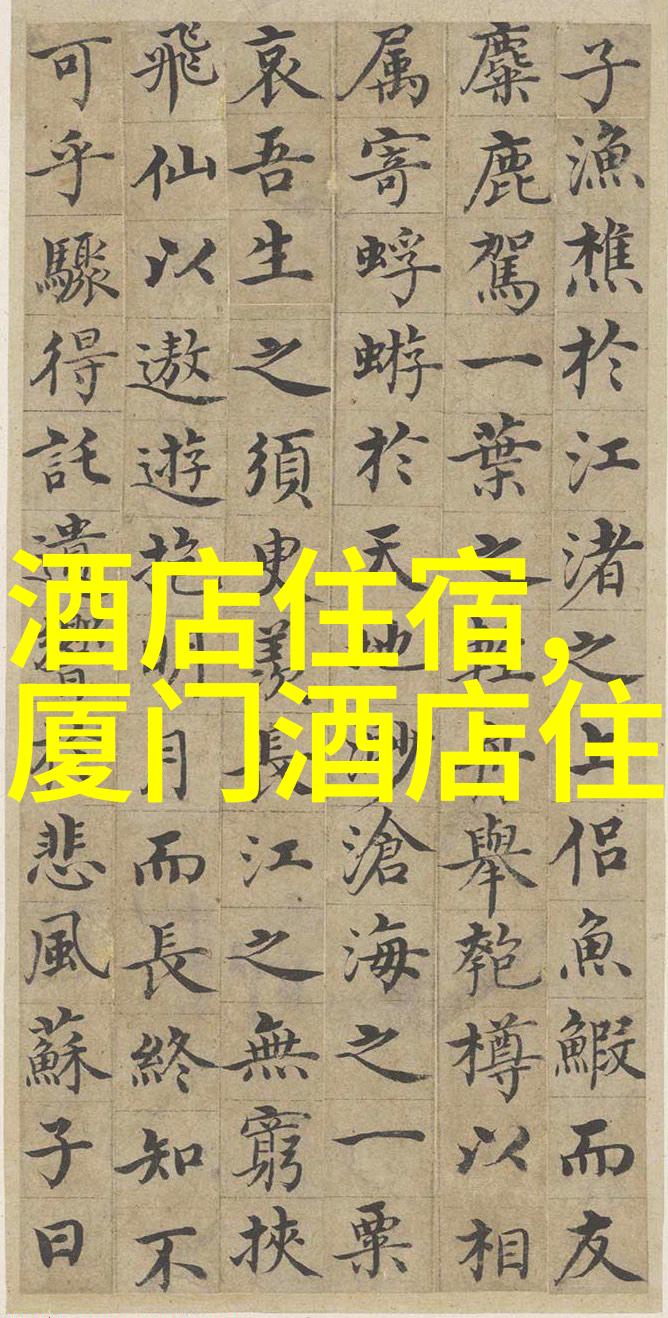 子漁樵於江渚之上侶魚鰕而友
麋鹿駕一葉之輕舟舉匏樽以相
属寄蜉蝣於天地渺滄海之一粟
哀吾生之須臾羡長江之無窮挾
飛仙以遨遊抱明月而長終知不
可乎驟得託遺響悲風蘇子曰
酒店住宿,
厦门酒店住